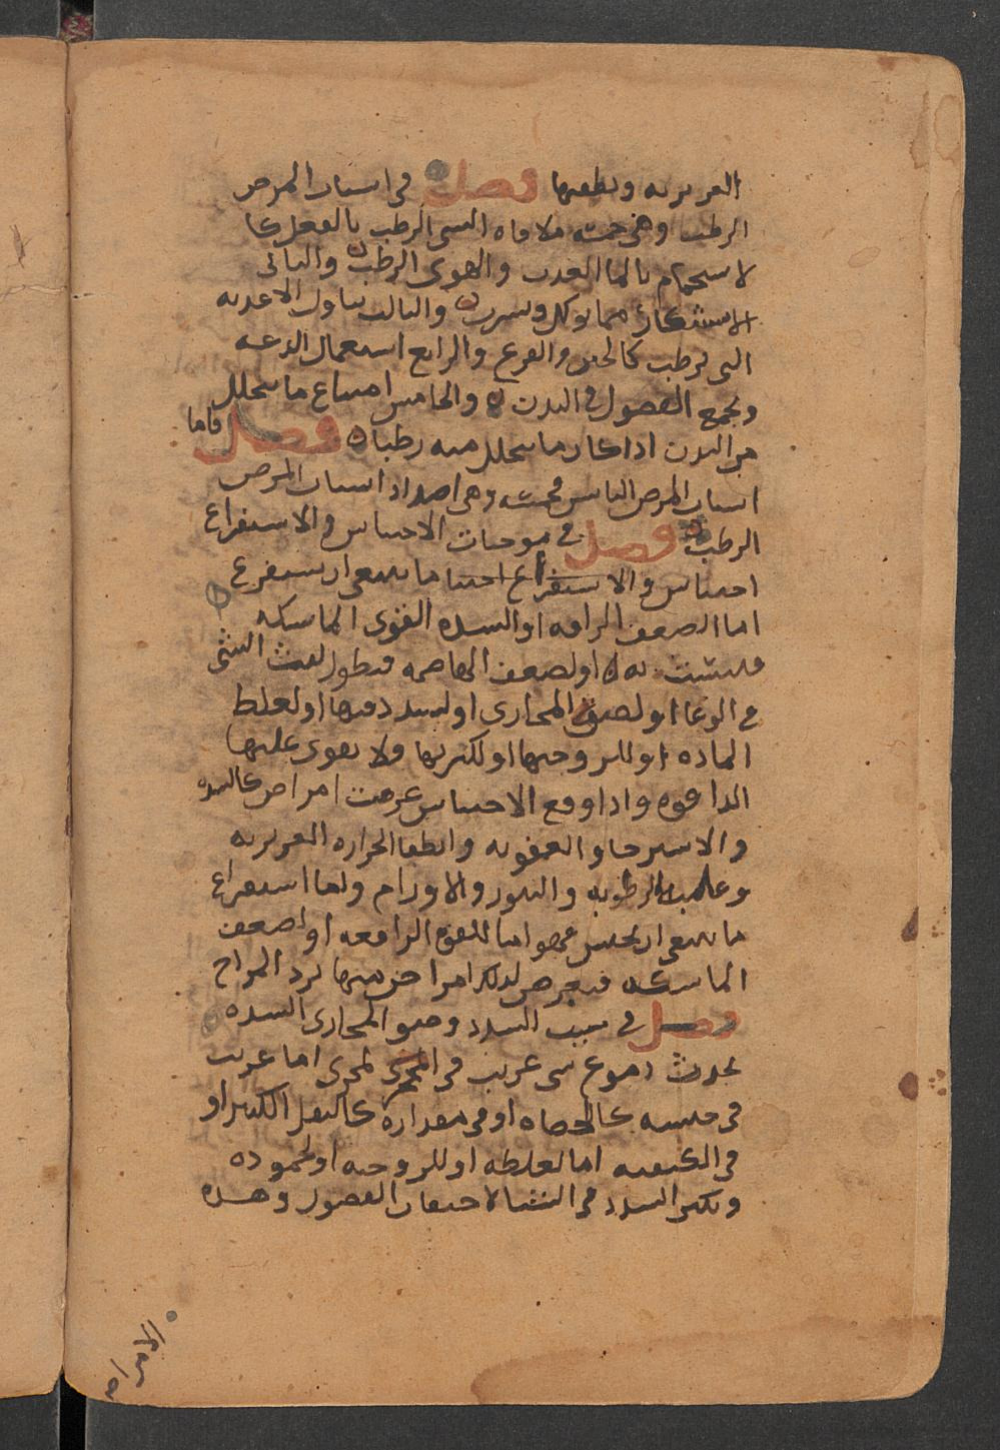 الغريزيه ويطفيها فصل في اسباب المرض
الرطب وهي خمسه ملاقاه الشي الرطب بالفعل كا
لاستحمام بالما العذب والهوى الرطب والثاني
الاستكثار مما يوكل ويشرب والثالث تناول الاغذيه
التي ترطب كالخس والقرع والرابع استعمال الدعه
وتجمع الفضول في البدن والخامس امتناع ما يتحلل
من البدن اذا كان ما يتحلل منه رطبا فصل فاما
اسباب المرض اليابس فخمسه وهي اضداد اسباب المرض
الرطب فصل في موجبات الاحتباس والاستفراغ
احتباس والاستفراغ احتبا ما ينبغي ان يستفرغ
اما لضعف الدافعه او لشده القوى الماسكه
فتشبث به او لضعف الهاضمه فيطول لبث الشي
في الوعا او لضيق المجاري او لسدد فيها او لغلظ
الماده او للزوجتها او لكثرتها ولا يقوى عليها
الدافعه واذا وقع الاحتباس عرضت امراض كالسده
والاسترخا والعفونه وانطفا الحراره الغريزيه
وغلبه الرطوبه والبثور والاورام واما استفراغ
ما ينبغي ان يحتبس فهو اما لقوه الدافعه او لضعف
الماسكه فيعرض لذلك امراض منها برد المزاج
فصل في سبب السدد وضيق المجاري السده
تحدث وقوع شي غريب في المجرى اما غريب
في جنسه كالحصاه او في مقداره كالثفل الكثير او
في الكيفيه اما لغلظه او للزوجته او لجموده
وتكثر السدد في الشتا لاحتقان الفضول وهذه
الامراض